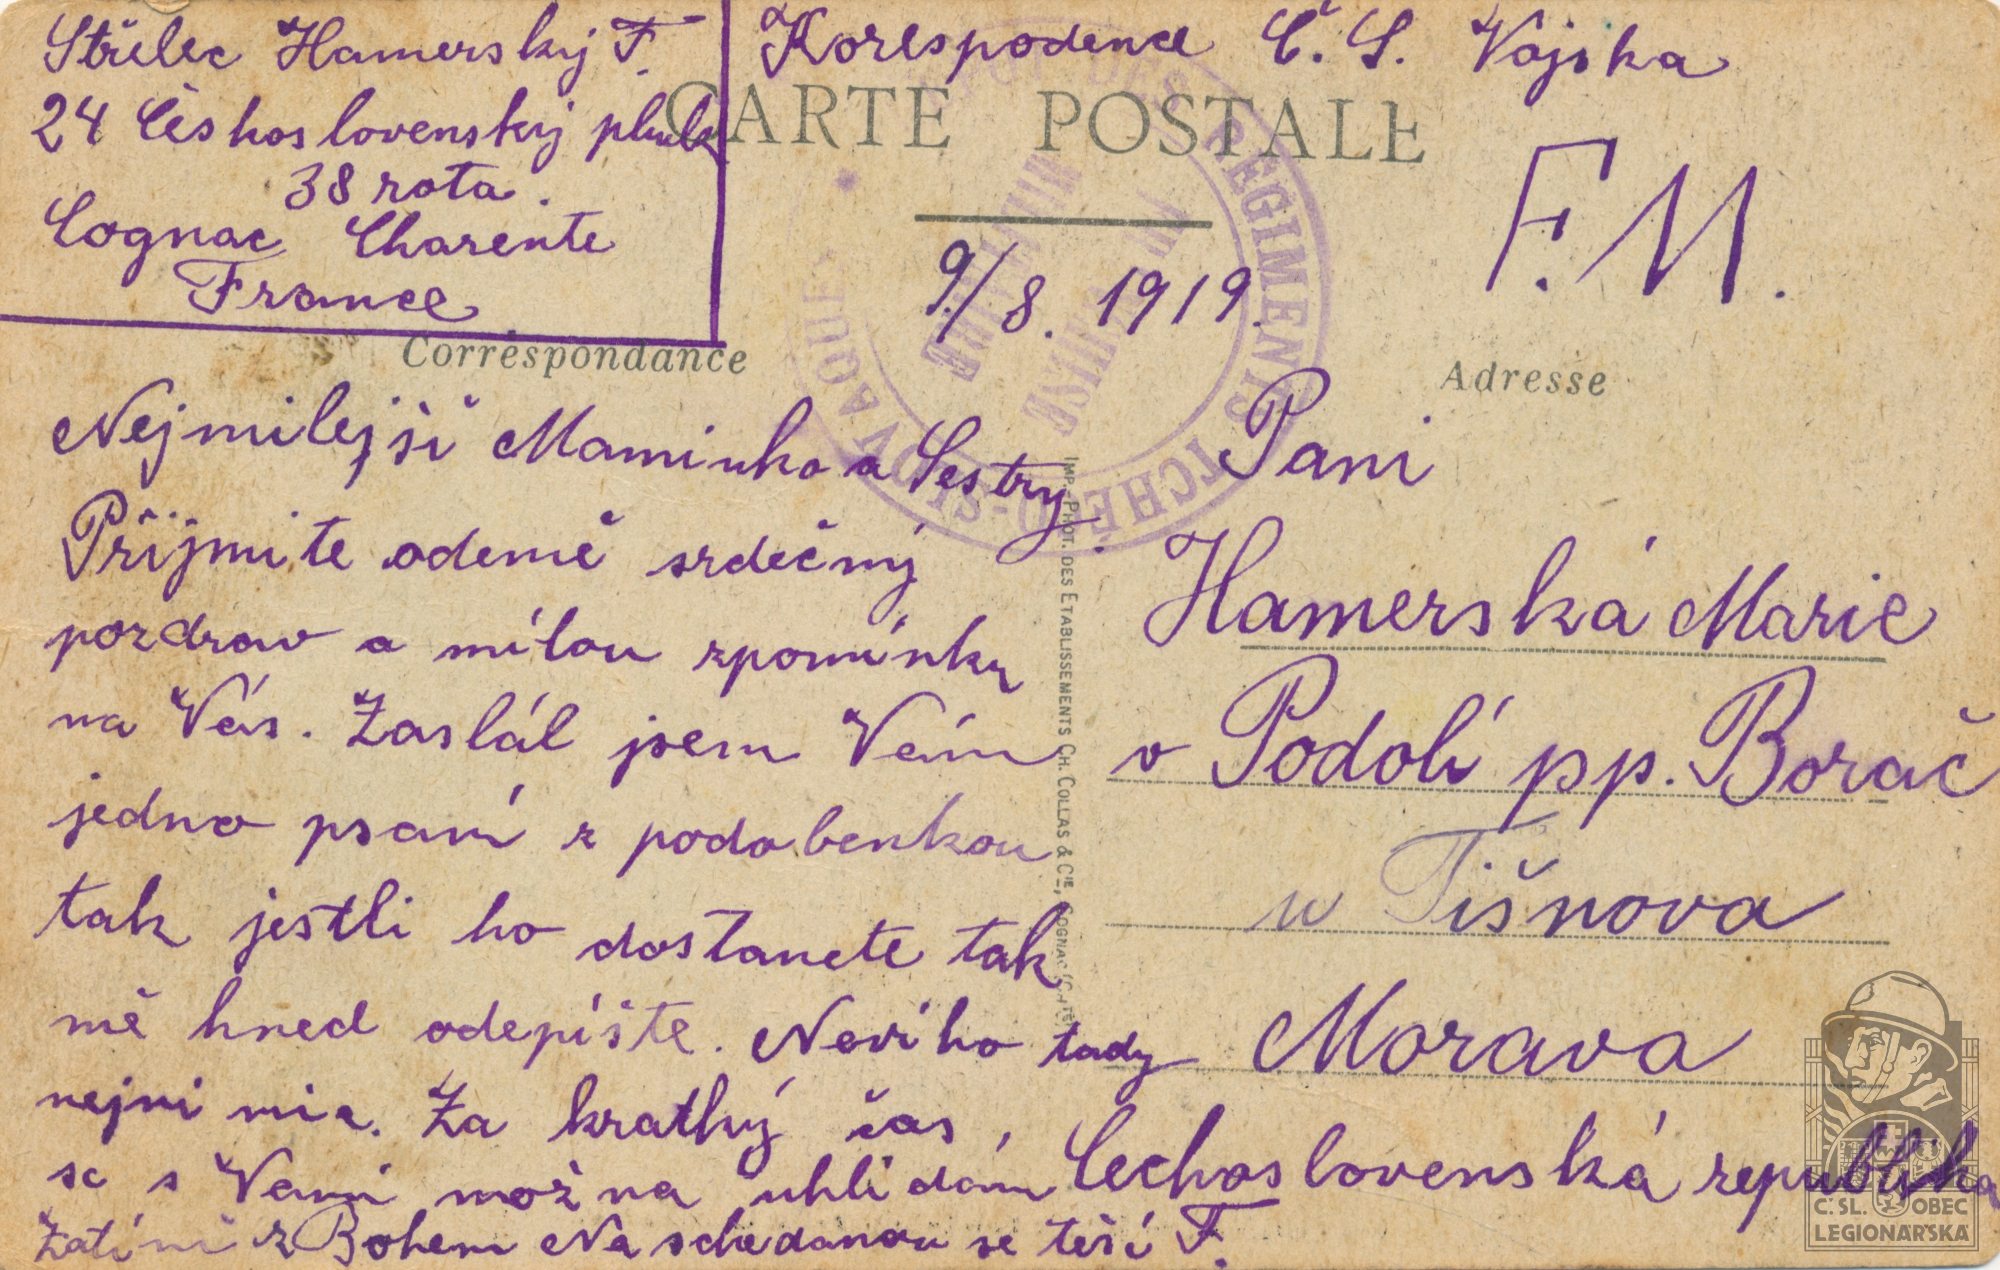 Střelec Hamerský F.
24 Československý pluk
38 rota.
Cognac Charente
France
Korespodence Č. S. Vojska
CARTE POSTALE
F. M.
9/8. 1919.
Correspondance
Adresse
Nejmilejši Maminko a Sestry.
Přijmite odemě srdečný
pozdrav a mílou zpomínku
na Vás. Zaslál jsem Vám
jedno psaní z podobenkou
tak jestli ho dostanete tak
mě hned odepíšte. Noviho tady
nejni nic. Za kratký čas,
se s Vami možna uhlidám
Zatím z Bohem Na schedanou se těší F.
Pani
Hamerská Marie
v Podolí pp. Borač
u Tišnova
Morava
Čechoslovenská republika
IMP.-PHOT. DES ETABLISSEMENTS CH. COLLAS & CIE, COGNAC
REGIMENTS TCHÉCO-SLOVAQUE
Č. SL. OBEC
LEGIONÁŘSKÁ